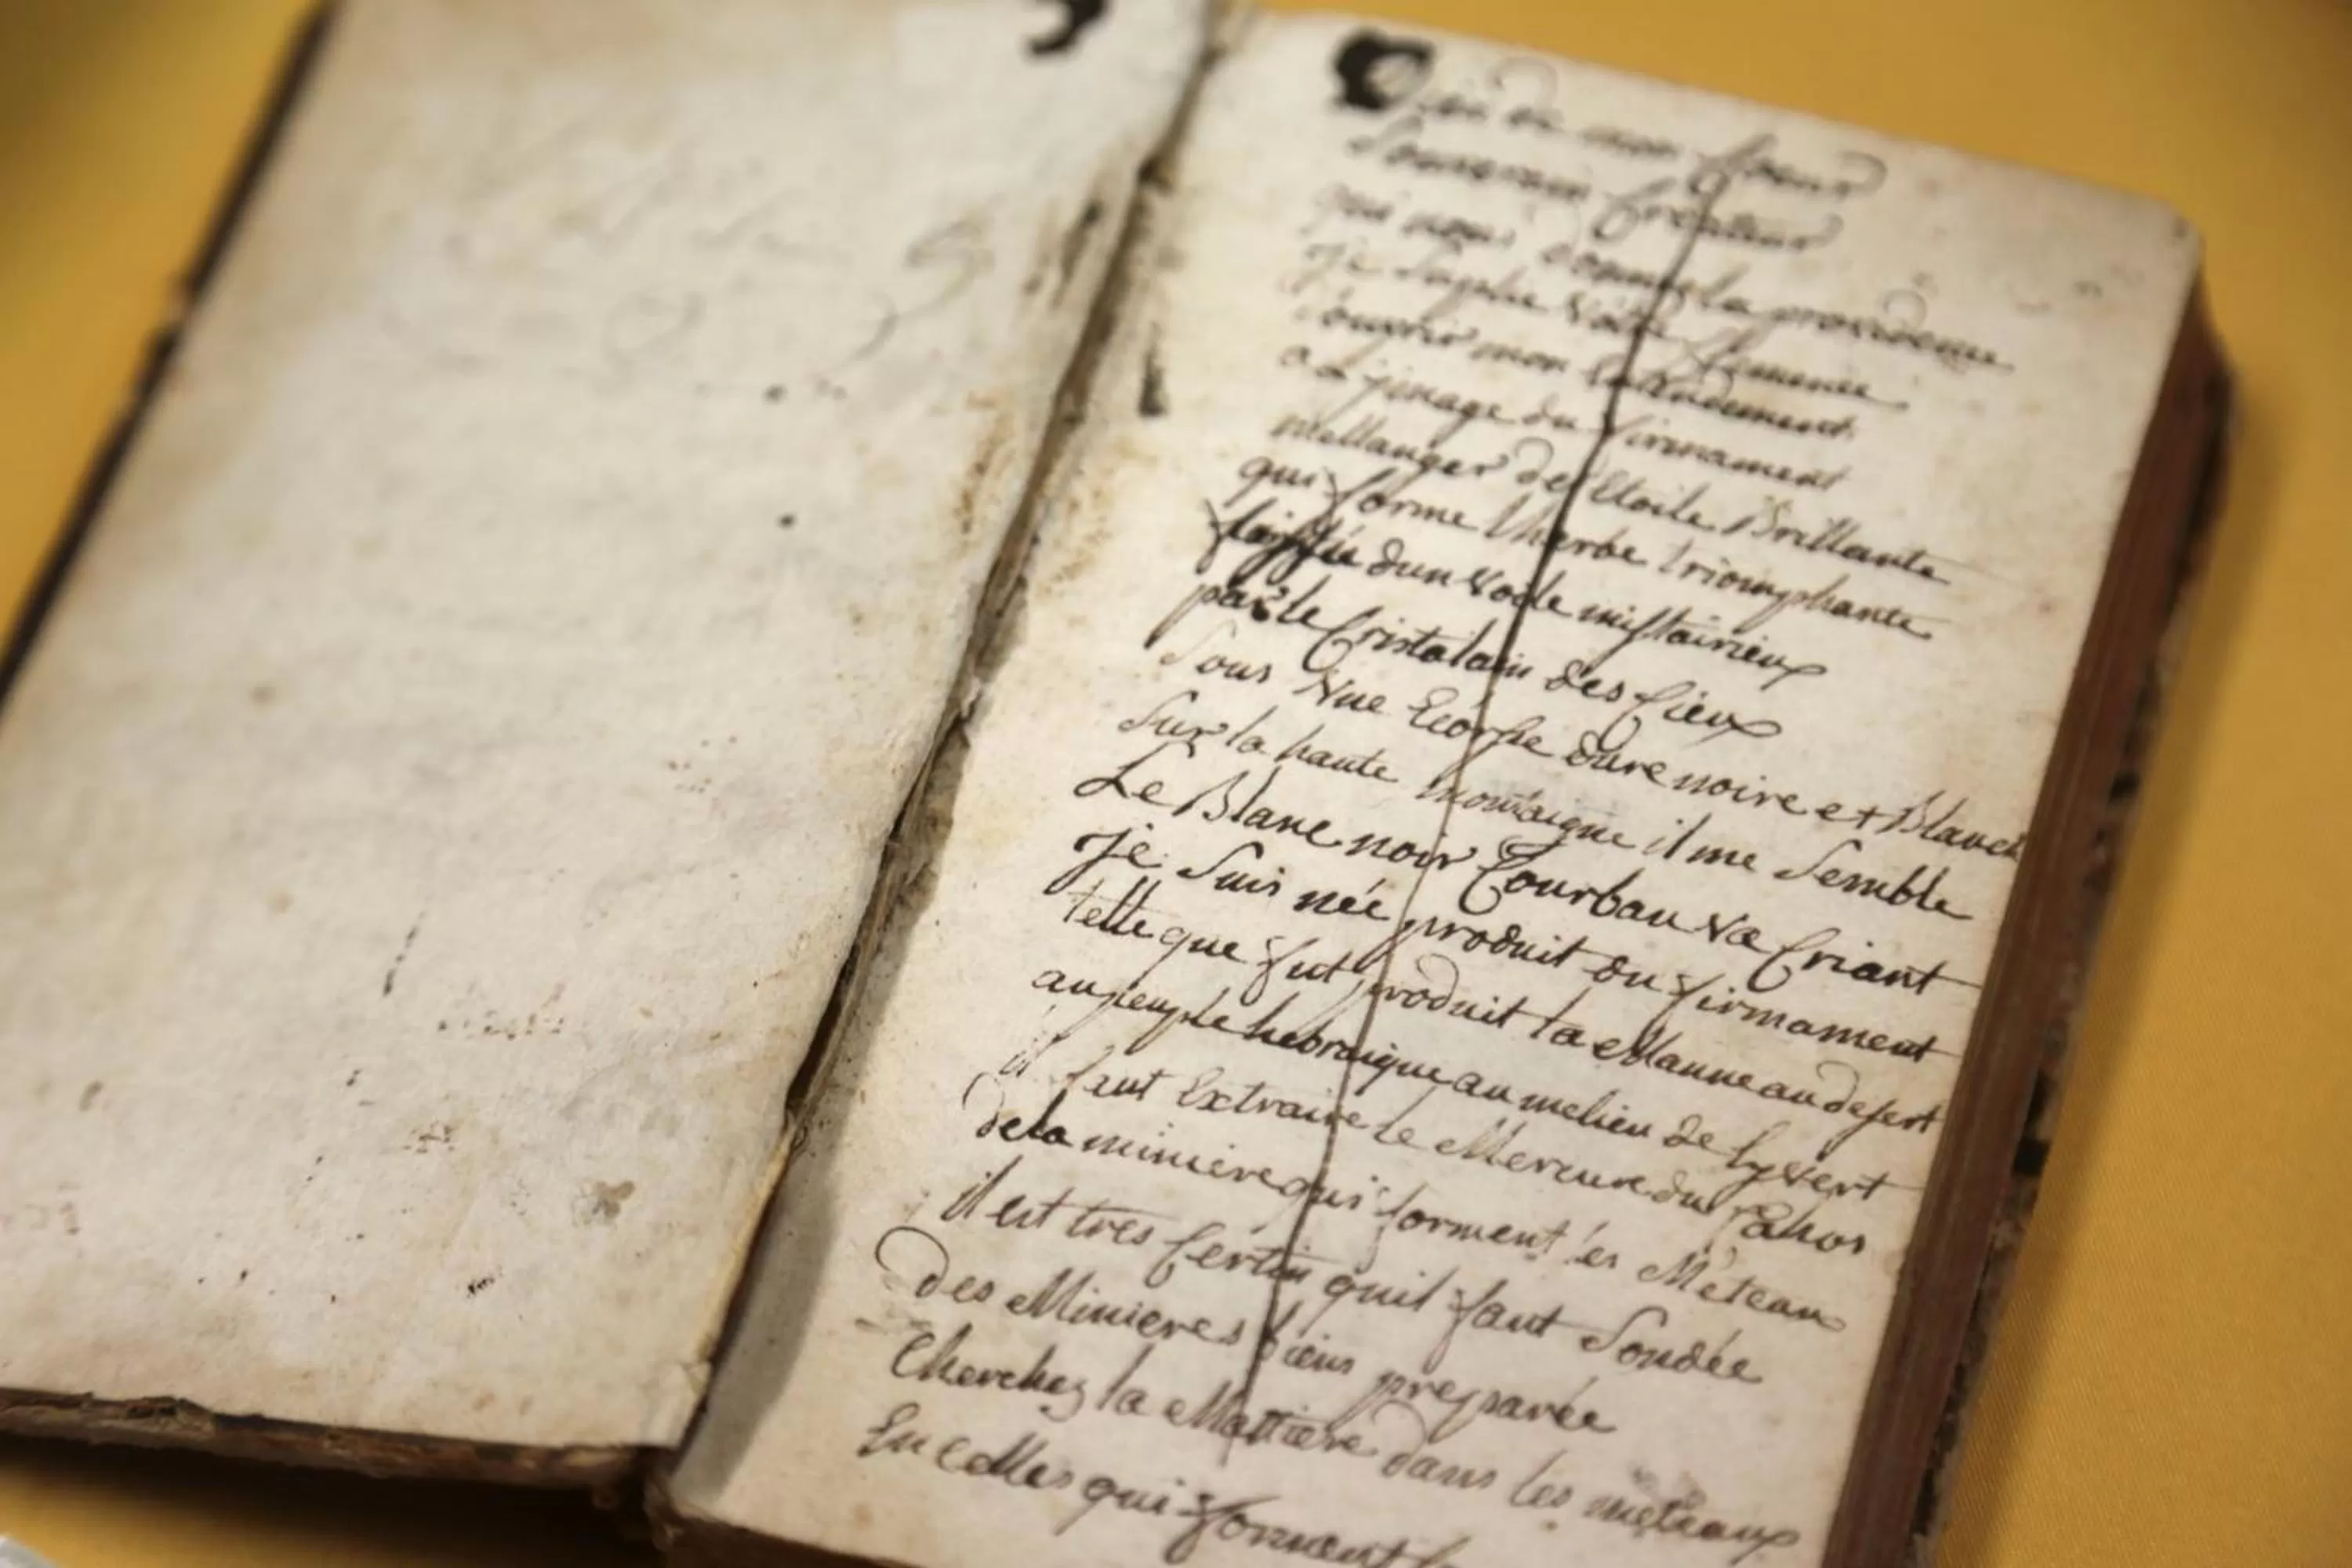 Dieu de mon Coeur
Souverain Createur
qui nous donne la providence
Je Suplie Votre Clemence
douvrir mon Entendement
a Limage du firmament
mellanger de Etoile Brillante
qui forme lherbe triomphante
dun Voile mistairieux
par le Cristalain des Cieux
Sous Vne Ecorse dure noire et Blanch
Sur la haute montaigne il me Semble
Le Blanc noir Courbau Va Criant
Je Suis née produit du firmament
telle que fut produit la Manne au desert
au peuple hebraique au melieu de
il faut Extraire le Mercure du Cahos
de la miniere qui forment les Méteaux
il est tres Certin quil faut Sondée
des Minieres biens preparée
Cherchez la Mattiere dans les meteaux
En Celles qui forment